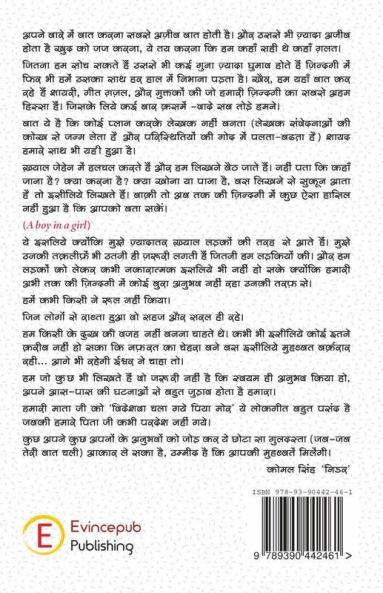 अपने बारे में बात करना सबसे अज़ीब बात होती है। और उससे भी ज़्यादा अजीब
होता है खुद को जज करना, ये तय करना कि हम कहाँ सही थे कहाँ ग़लत।
जितना हम सोच सकते हैं उससे भी कई गुना ज़्यादा घुमाव होते हैं ज़िन्दगी में
फिर भी हमें उसका साथ हर हाल में निभाना पड़ता है। खैर, हम यहाँ बात कर
रहे हैं शायरी, गीत ग़ज़ल, और मुक्तकों की जो हमारी ज़िन्दगी का सबसे अहम
हिस्सा हैं। जिसके लिये कई बार क़समें -वादे सब तोड़े हमने।
बात ये है कि कोई प्लान करके लेखक नहीं बनता (लेखक संवेदनाओं की
कोख से जन्म लेता है और परिस्थितियों की गोद में पलता-बढता है) शायद
हमारे साथ भी यही हुआ है।
ख़्याल जेहेन में हलचल करते हैं और हम लिखने बैठ जाते हैं। नहीं पता कि कहाँ
जाना है? क्या करना है? क्या खोना या पाना है, बस लिखने से सुकून आता
है तो इसीलिये लिखते हैं। बाक़ी तो अब तक की ज़िन्दगी में कुछ ऐसा हासिल
नहीं हुआ है कि आपको बता सकें।
(A boy in a girl)
ये इसलिये क्योंकि मुझे ज़्यादातर ख़्याल लड़कों की तरह से आते हैं। मुझे
उनकी तक़लीफ़ें भी उतनी ही ज़रूरी लगती हैं जितनी हम लड़कियों की। और हम
लडकों को लेकर कभी नकारात्मक इसलिये भी नहीं हो सके क्योंकि हमारी
अभी तक की ज़िन्दगी में कोई बुरा अनुभव नहीं रहा उनकी तरफ़ से।
हमें कभी किसी ने रूल नहीं किया।
जिन लोगों से राब्ता हुआ वो सहज और सरल ही रहे।
हम किसी के दुख की वजह नहीं बनना चाहते थे। कभी भी इसीलिये कोई इतने
क़रीब नहीं हो सका कि नफ़रत का चेहरा बने बस इसीलिये मुहब्बत बर्क़रार
रही... आगे भी रहेगी ईश्वर ने चाहा तो।
हम जो कुछ भी लिखते हैं वो जरूरी नहीं है कि स्वयम ही अनुभव किया हो,
अपने आस-पास की घटनाओं से बहुत जुड़ाव होता है हमारा।
हमारी माता जी को 'विदेशवा चला गये पिया मोर' ये लोकगीत बहुत पसंद है
जबकी हमारे पिता जी कभी परदेश नहीं गये।
कुछ अपने कुछ अपनों के अनुभवों को जोड़ कर ये छोटा सा गुलदस्ता (जब-जब
तेरी बात चली) आकार ले सका है, उम्मीद है कि आपकी मुहब्बतें मिलेंगी।
कोमल सिंह 'निडर'
ISBN 978-93-90442-46-1
E
Evincepub
Publishing
9 789390 442461 >